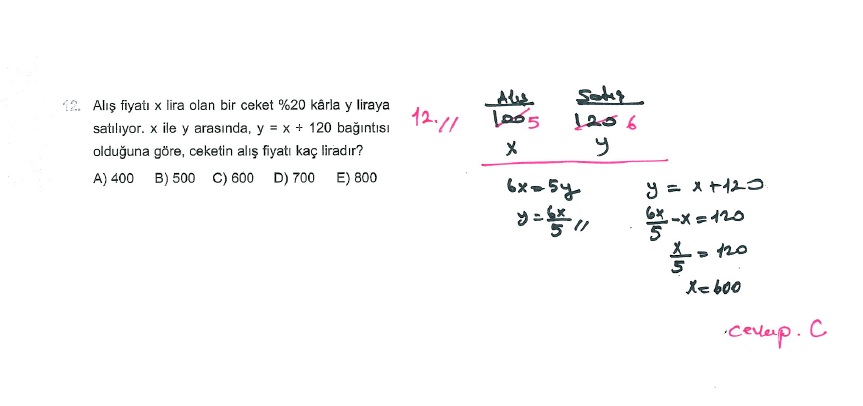 12. Alış fiyatı x lira olan bir ceket %20 kârla y liraya
satılıyor. x ile y arasında, y = x + 120 bağıntısı
olduğuna göre, ceketin alış fiyatı kaç liradır?
A) 400 B) 500 C) 600 D) 700 E) 800
12.//
Alış Satış
100 5 120 6
x y
6x=5y
y=6x/5 //
y = x+120
6x/5 -x=120
x/5 = 120
x=600
cevap. C